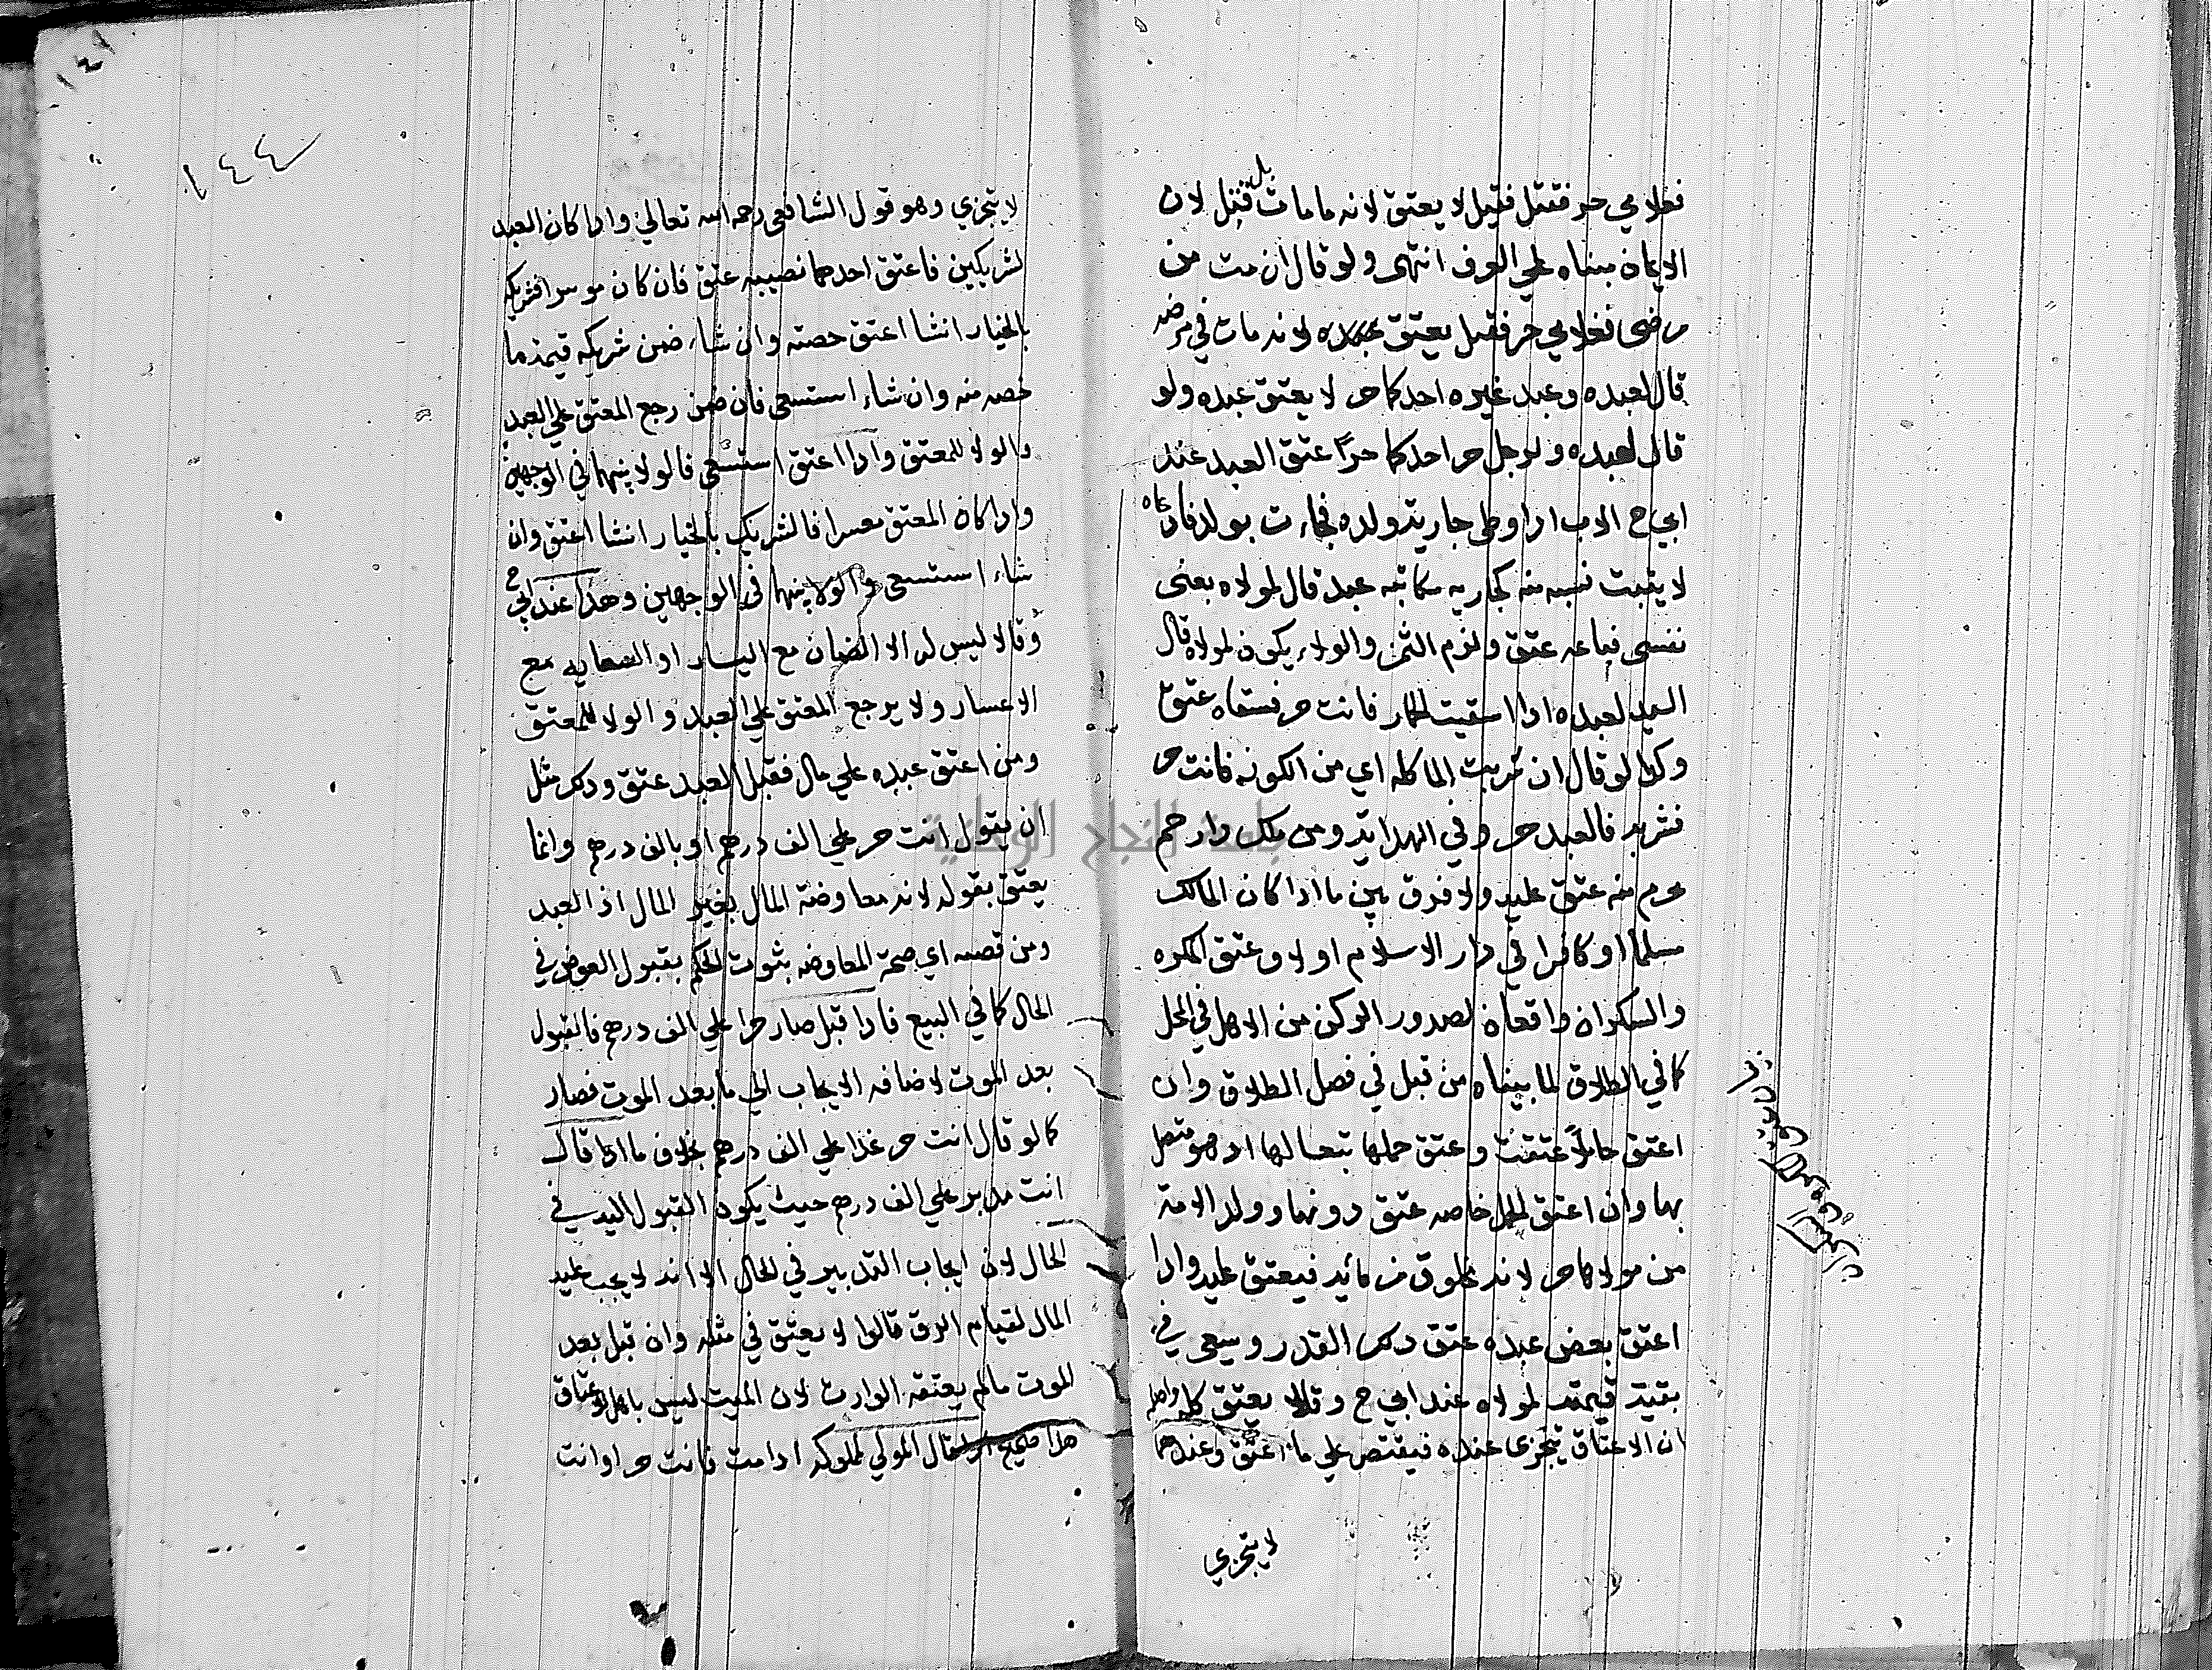 فغلامي حر فقتل فقيل لا يعتق لانه ما مات بل قتل لان
الايمان مبناه علي العرف انتهى ولو قال ان مت من
مرضى فغلامي حر فقيل يعتق عبده لانه مات في مرضه
قال لعبده وعبد غيره احدكما حر لا يعتق عبده ولو
قال لعبده ولرجل حر احدكما حرًا عتق العبد عند
ابي ح الاب اذا وطى جارية ولده فجاءت بولد فادعاه
لا يثبت نسبه منه كجاريه مكاتبه عبد قال لمولاه بعنى
نفسى فباعه عتق ولزم الثمن والولاء يكون لمولاه قال
السيد لعبده اذا اسقيت الحمار فانت حر فسقاه عتق
وكذا لو قال ان شربت الما كله اي من الكوز فانت حر
فشربه فالعبد حر وفي الهداية ومن ملك ذا رحم
محرم منه عتق عليه ولا فرق بين ما اذا كان المالك
مسلما او كافرا في دار الاسلام او لا وعتق المكره
والسكران واقعان لصدور الركن من الاهل في المحل
كما في الطلاق لما بيناه من قبل في فصل الطلاق وان
اعتق حاملاً عتقت وعتق حملها تبعا لها اذ هو متصل
بها وان اعتق الحمل خاصه عتق دونها وولد الامة
من مولاها حر لانه مخلوق من مائه فيعتق عليه واذا
اعتق بعض عبده عتق ذلك القدر وسعى في
بقية قيمته لمولاه عند ابي ح وقالا يعتق كله واصله
ان الاعتاق يتجزى عنده فيقتصر علي ما اعتق وعندهما
لا يتجزي
١٤٤
لا يتجزي وهو قول الشافعي رحمه الله تعالي واذا كان العبد
لشريكين فاعتق احدهما نصيبه عتق فان كان موسرا فشريكه
بالخيار انشا اعتق حصته وان شاء ضمن شريكه قيمة ما
خصه منه وان شاء استسعى فان ضمن رجع المعتق علي العبد
والولا للمعتق واذا اعتق استسعى فالولا بينهما في الوجهين
واذا كان المعتق معسرا فالشريك بالخيار انشا اعتق وان
شاء استسعى والولا بينهما في الوجهين وهذا عند ابي ح
وقالا ليس له الا الضمان مع اليسار او السعايه مع
الاعسار ولا يرجع المعتق علي العبد والولا للمعتق
ومن اعتق عبده علي مال فقبل العبد عتق وذكر مثل
ان يقول انت حر علي الف درهم او بالف درهم وانما
يعتق بقوله لانه معاوضة المال بغير المال اذ العبد
ومن قصه اي صحة المعاوضه بثوت الحكم بقبول العوض في
الحال كما في البيع فاذا قبل صار حرا علي الف درهم فالقبول
بعد الموت لاضافه الايجاب الي ما بعد الموت فصار
كما لو قال انت حر غدا علي الف درهم بخلاف ما اذا قال
انت مدبر علي الف درهم حيث يكون القبول اليه في
الحال لان ايجاب التدبير في الحال الا انه لا يجب عليه
المال لقيام الرق قالوا لا يعتق في مثله وان قبل بعد
الموت مالم يعتقه الوارث لان الميت ليس باهل الاعتاق
هذا صحيح قال المولي لمملوكه اذا مت فانت حر او انت